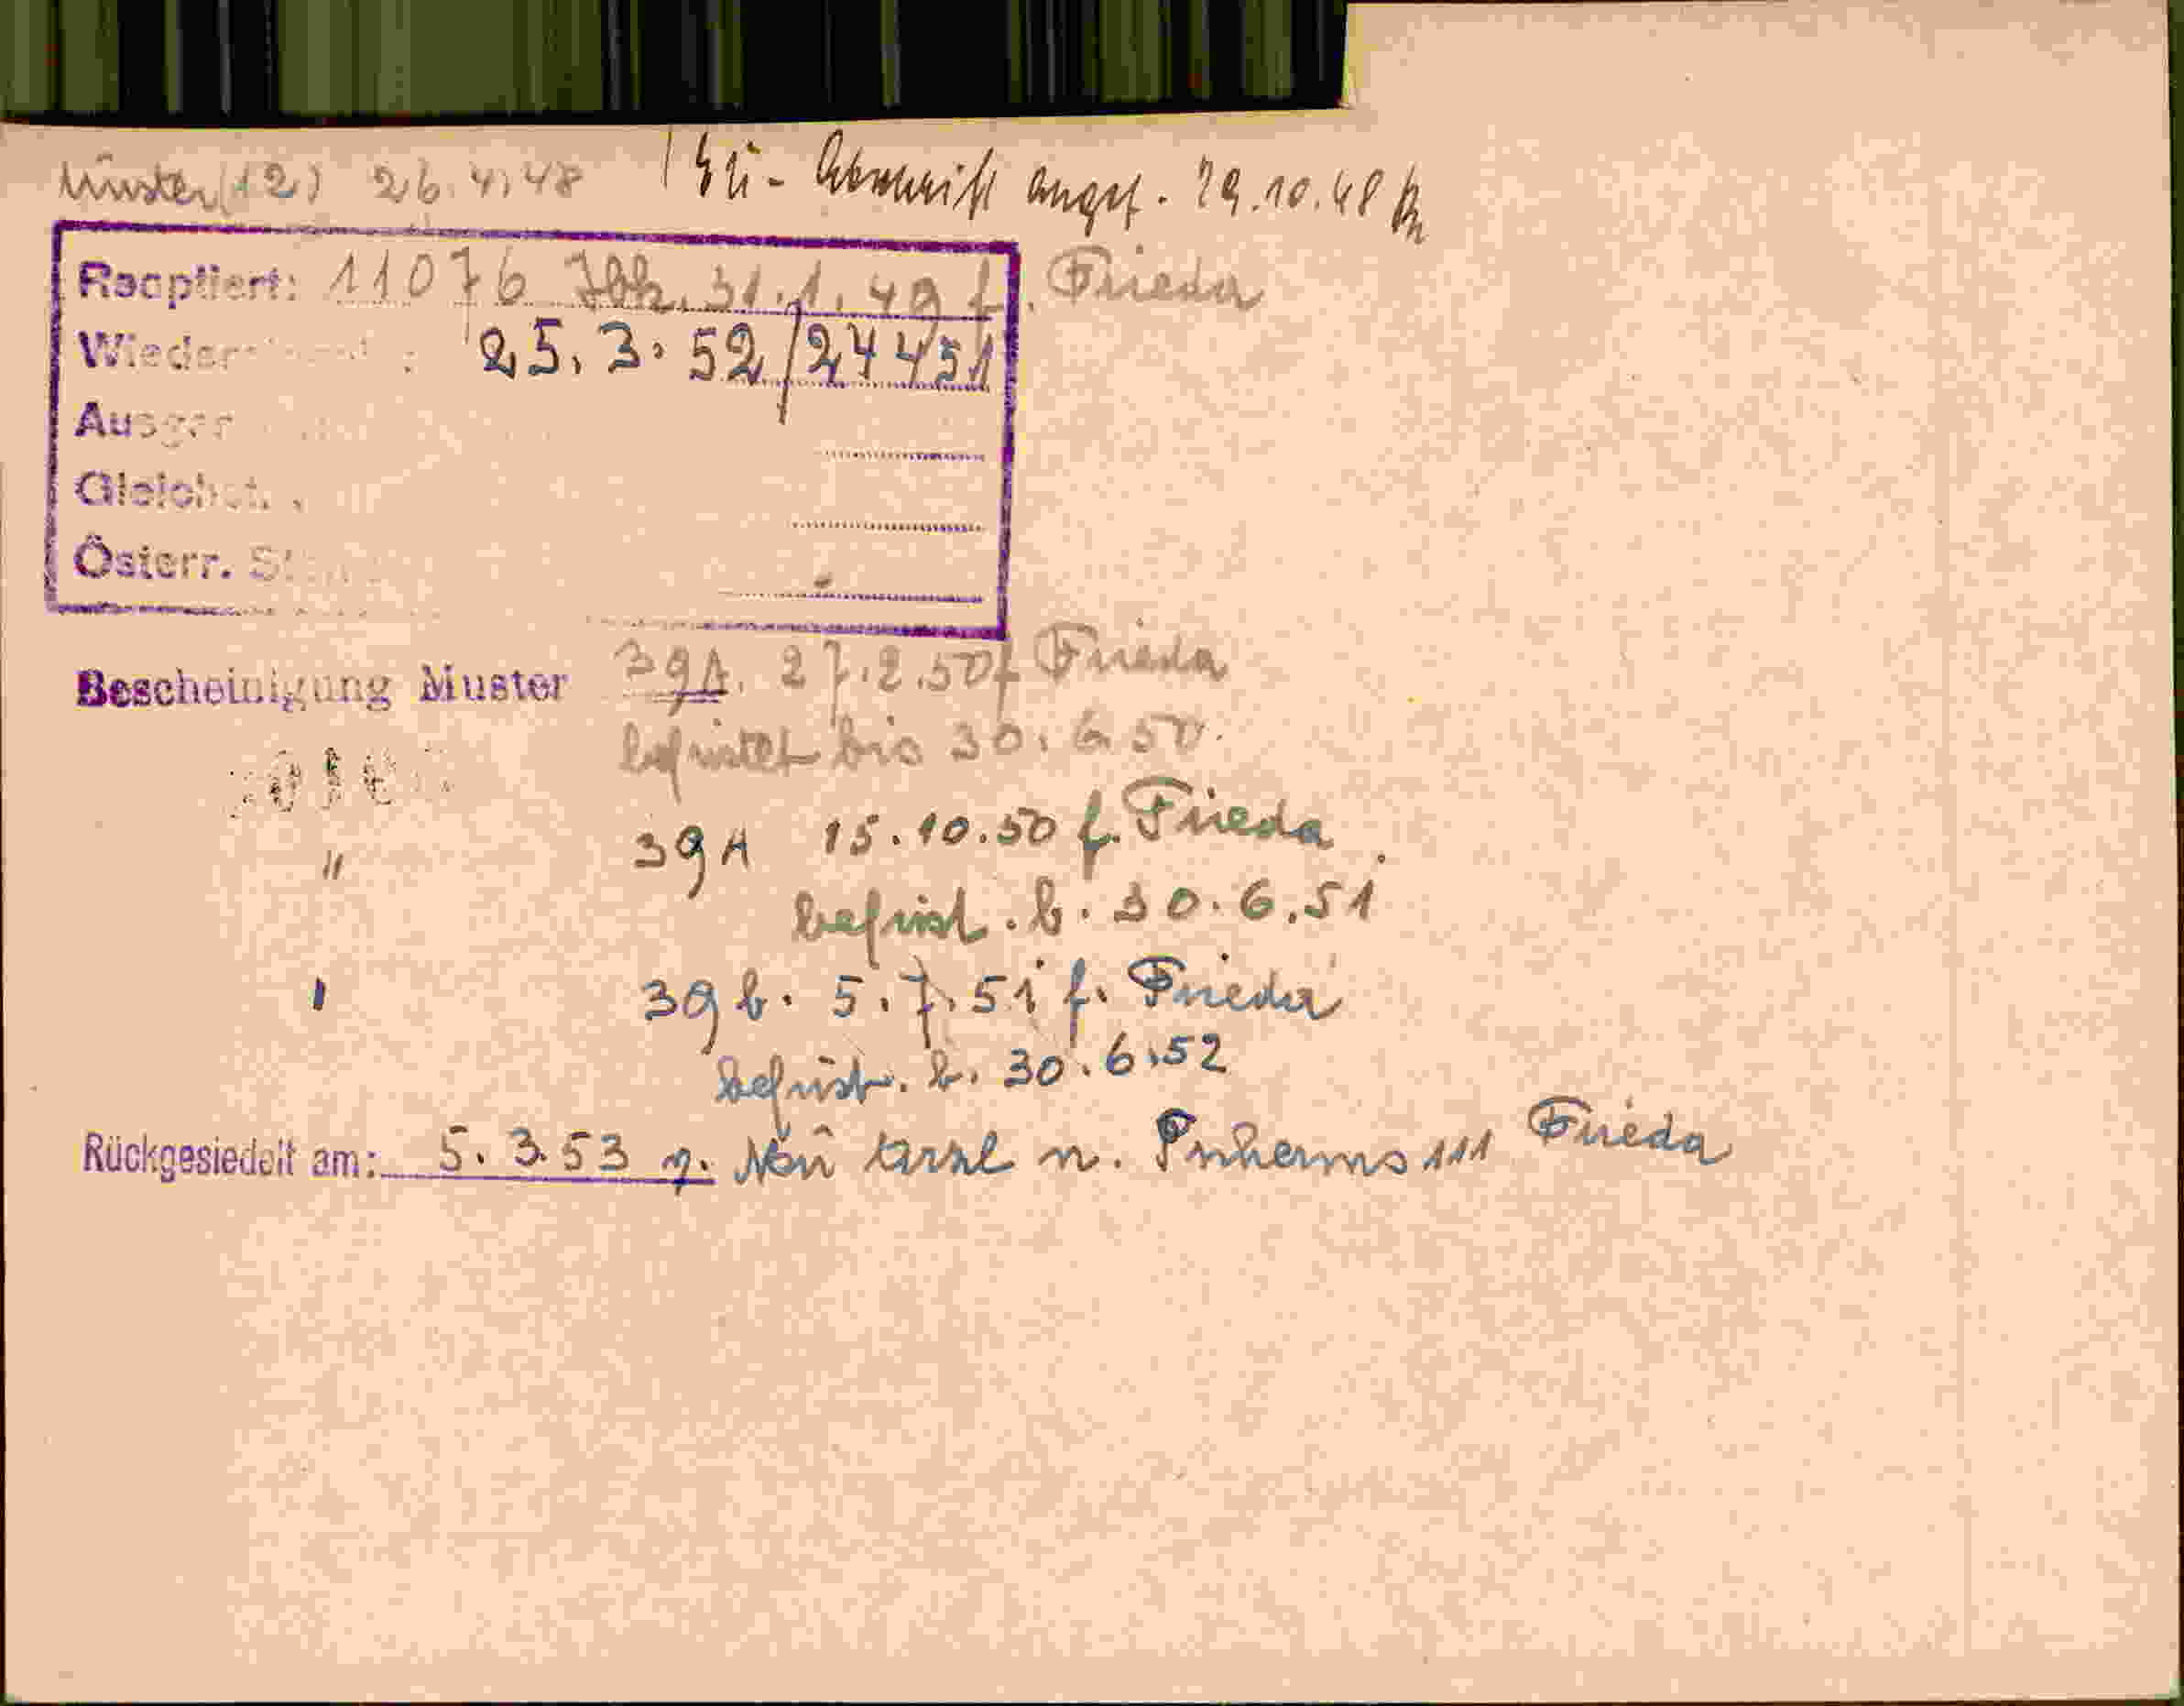 Muster (12) 26.4.48 Abschrift angef. 29.10.48
Reoptiert: 11076 31.1.49 f. Frieda
Wieder 25.3.52/24451
Ausger
Gleichst.
Österr. St
Bescheinigung Muster 39A. 27.2.50 f Frieda
befristet bis 30.6.50.
" 39A 15.10.50 f. Frieda
befrist. b. 30.6.51
39 b. 5.7.51 f. Frieda
befrist. b. 30.6.52
Rückgesiedelt am: 5.3.53 n. 111 Frieda